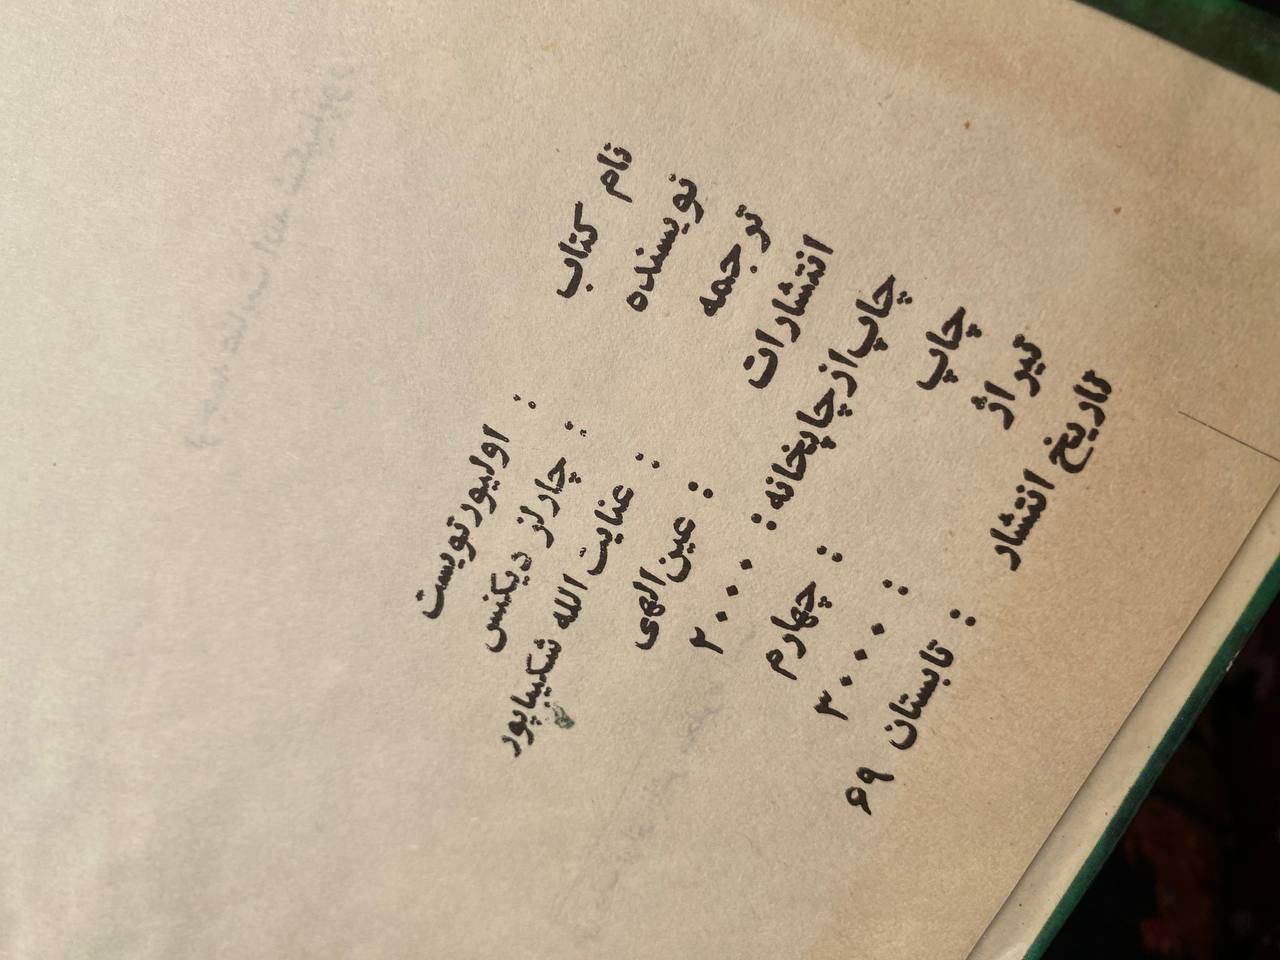 نام کتاب : اولیور تویست
نویسنده : چارلز دیکنس
ترجمه : عنایت الله شکیباپور
انتشارات : عین الهی
چاپ از چاپخانه : ۲۰۰۰
چاپ : چهارم
تیراژ : ۳۰۰۰
تاریخ انتشار : تابستان ۶۹